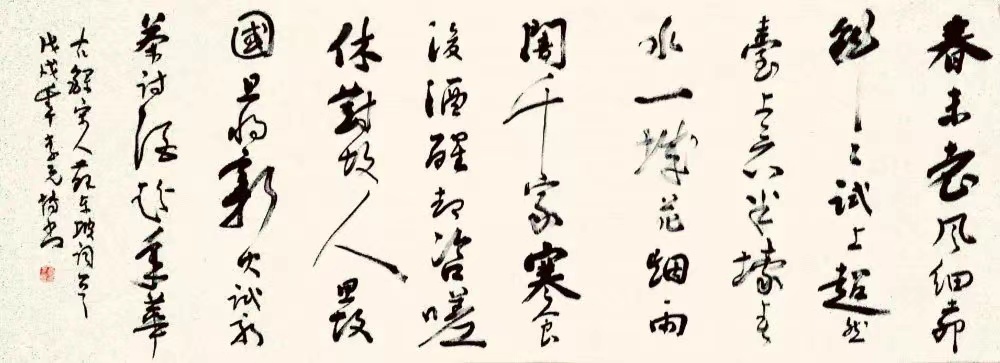 春未老风細柳
斜々試上超然
臺上看半壕春
水一城花烟雨
闇千家寒食
後酒醒却咨嗟
休對故人思故
國且将新火試新
茶詩酒趁年華
右録宋人蘇东坡詞
戊戌年李